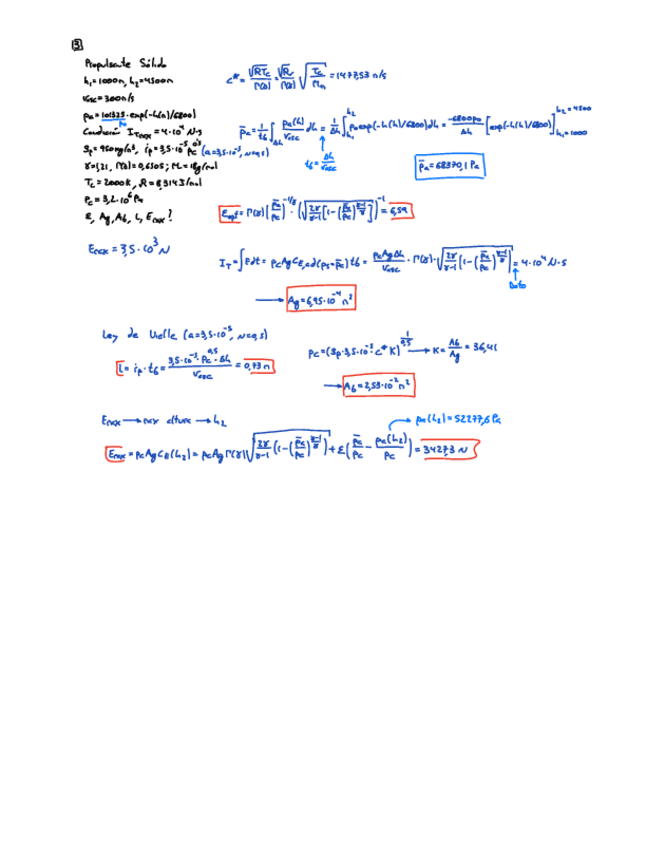 3
Propulsante Sólido
h₁=1000m, h₂=4500m
v_asc=300m/s
p_a=101325·exp(-h(m)/6800)
p₀
Condición I_Tmax=4·10⁴ N·s
ρ_p=950kg/m³, ṙ_p=3,5·10⁻⁵ p_c^0,5 (a=3,5·10⁻⁵, n=0,5)
γ=1,21, Γ(γ)=0,6505; M=18g/mol
T_c=2000K, R=8,314J/mol
p_c=3,2·10⁶ Pa
ε, Ag, Ab, L, E_max?
c* = √(RT_c)/Γ(γ) = √R/Γ(γ) √(T_c/M_m) = 1477,53 m/s
p̄_a = 1/t_b ∫_Δh p_a(h)/v_asc dh = 1/Δh ∫_h₁^h₂ p₀ exp(-h(h)/6800)dh = -6800p₀/Δh [exp(-h(h)/6800)]_h₁=1000^h₂=4500
t_b = Δh/v_asc
p̄_a = 68370,1 Pa
ε_opt = Γ(γ) (p̄_a/p_c)^(-1/γ) · (√(2γ/(γ-1) [1-(p̄_a/p_c)^((γ-1)/γ)]))^-1 = 6,59
E_max = 3,5·10³ N
I_T = ∫Edt = p_c Ag C_E,ad(p_s=p̄_a) t_b = p_c Ag Δh/v_asc · Γ(γ)·√(2γ/(γ-1) [1-(p̄_a/p_c)^((γ-1)/γ)] = 4·10⁴ N·s
Dato
→ Ag = 6,95·10⁻⁴ m²
Ley de Vieille (a=3,5·10⁻⁵, n=0,5)
L = ṙ_p·t_b = 3,5·10⁻⁵·p_c^0,5·Δh/v_asc = 0,73 m
p_c = (ρ_p·3,5·10⁻⁵·c*·K)^(1/0,5) → K = Ab/Ag = 36,41
→ Ab = 2,53·10⁻² m²
E_max → max altura → h₂
p_a(h₂) = 52277,6 Pa
E_max = p_c Ag C_E(h₂) = p_c Ag Γ(γ)√(2γ/(γ-1) (1-(p̄_a/p_c)^((γ-1)/γ)) + ε(p̄_a/p_c - p_a(h₂)/p_c) = 3427,3 N